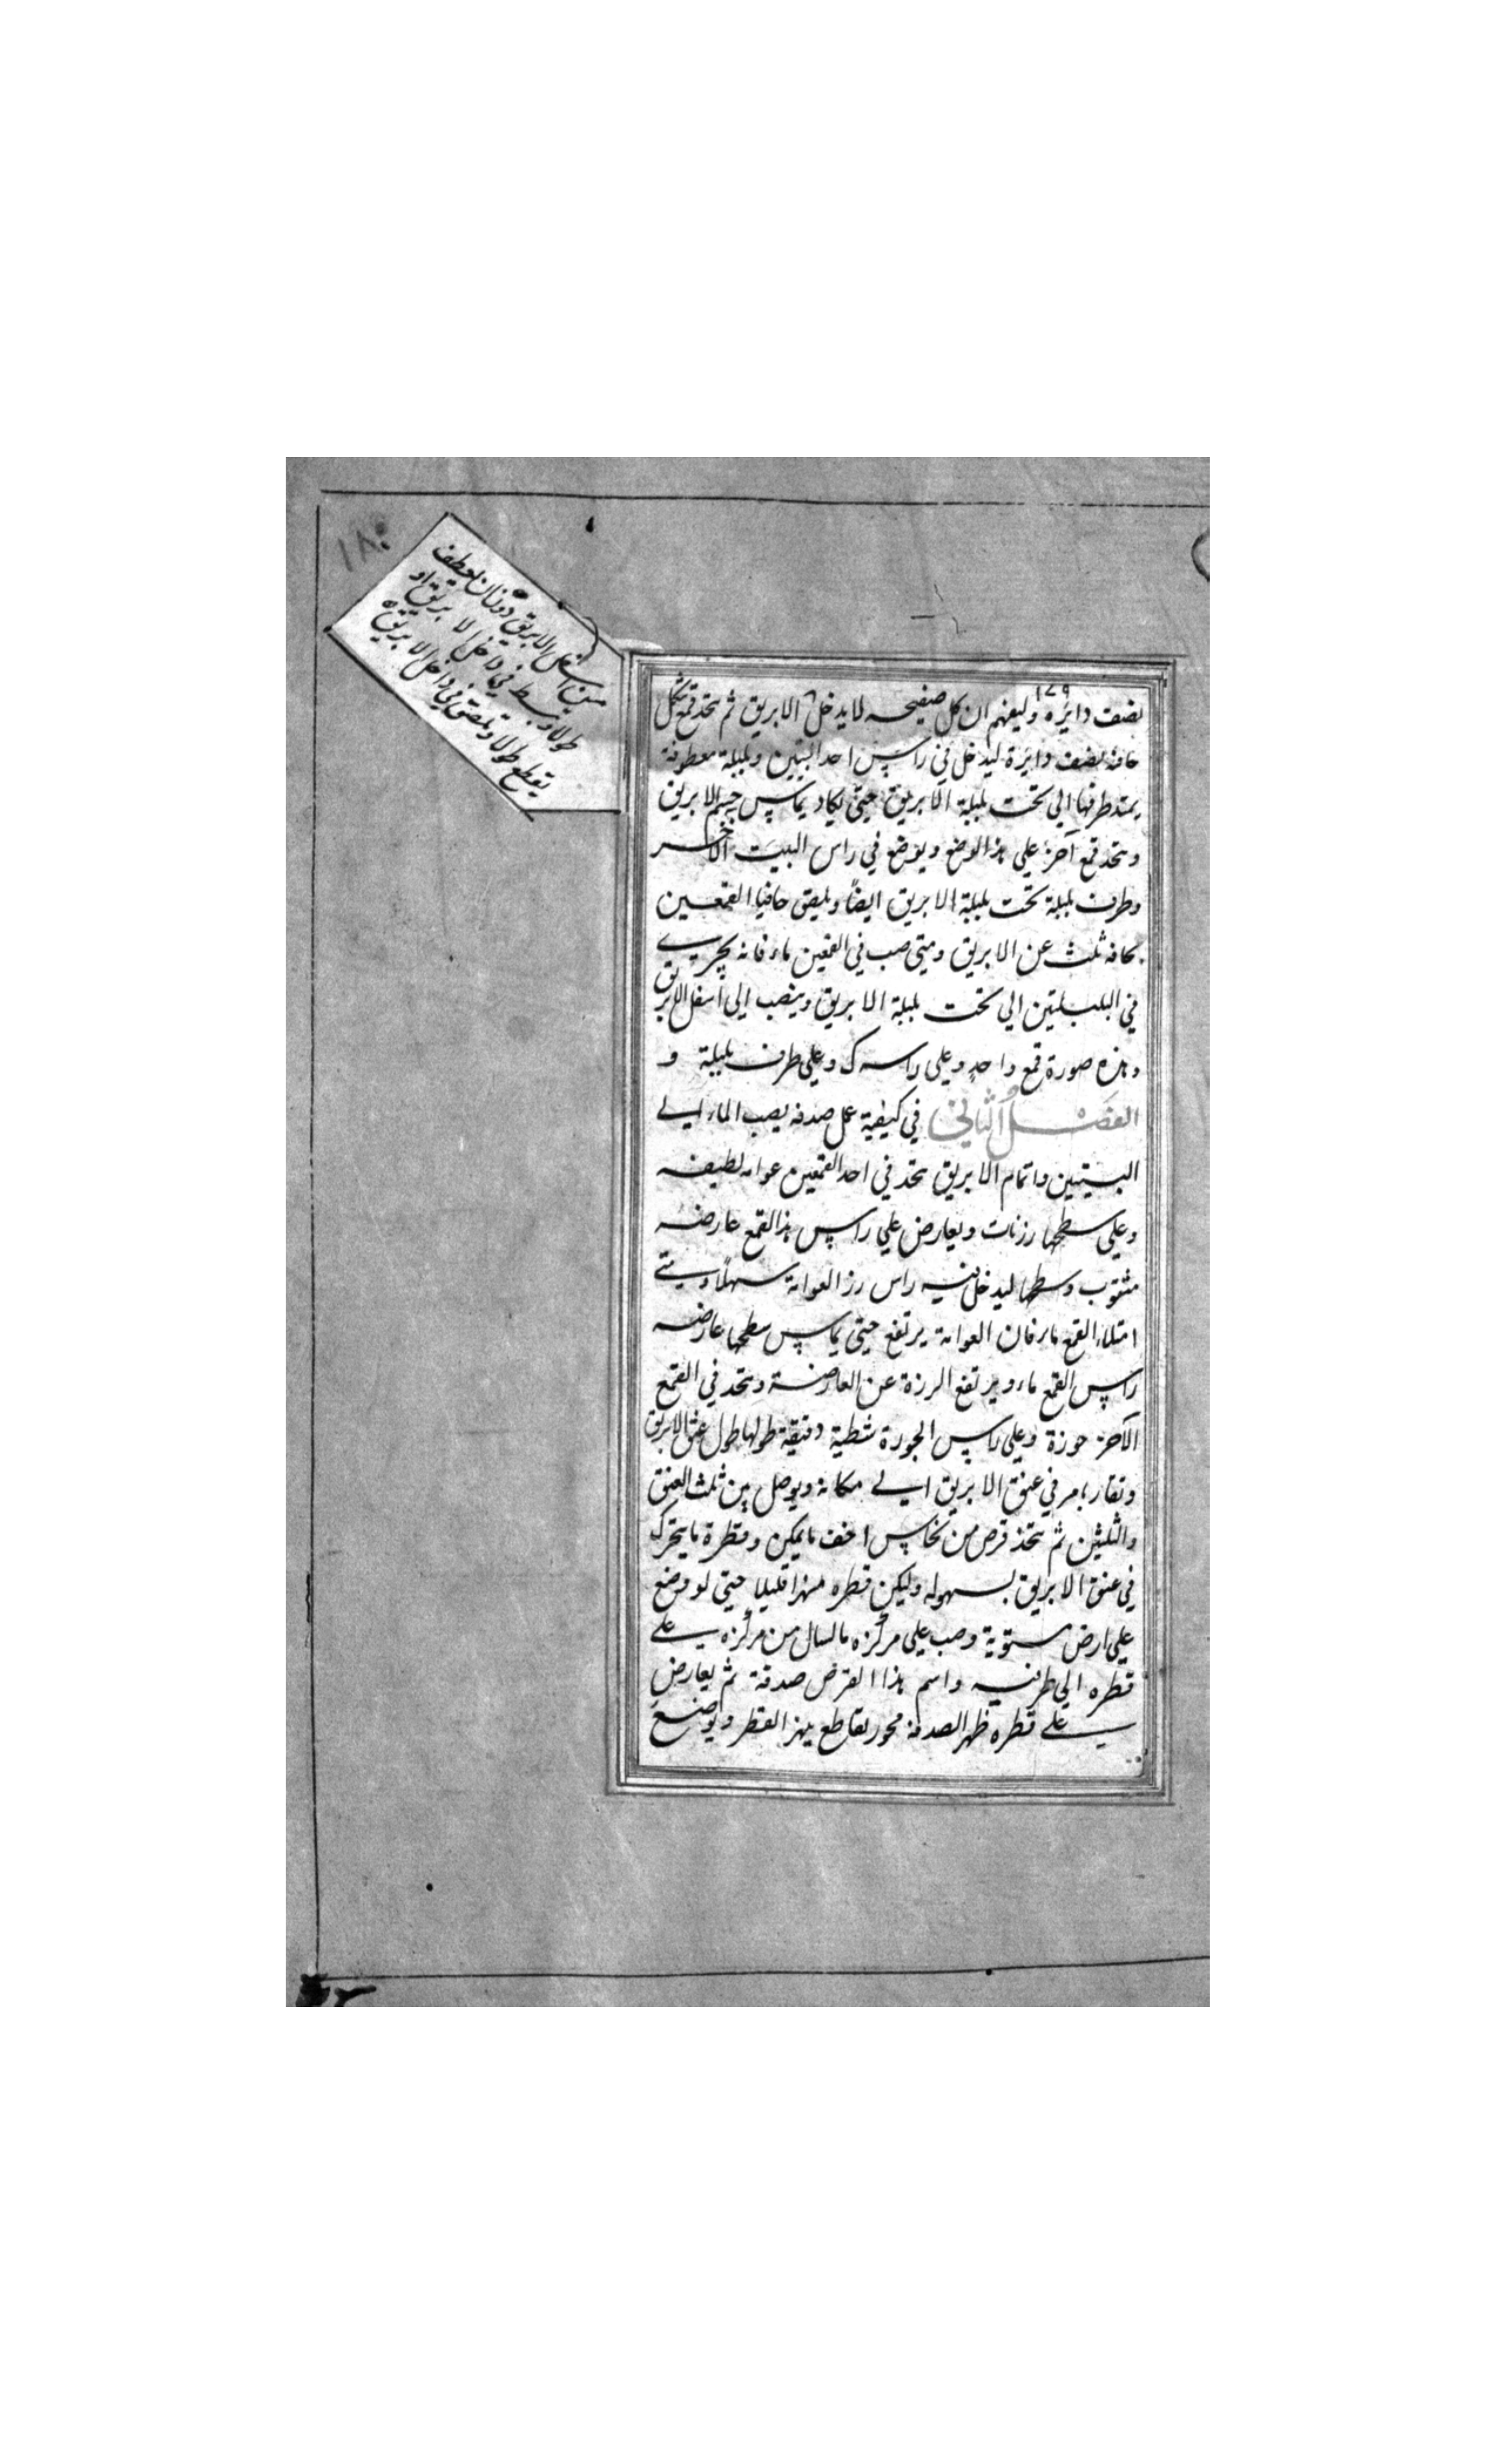 ١٨٠
من اسفل الابريق دونان لعطف
طولا وبسط في داخل الابريق او
يقطع طولا ويلصق في داخل الابريق
١٧٩
نصف دايره وليفهم ان كل صفيحه لا يدخل الابريق ثم يتخذ قمع شكل
حافته نصف دايرة ليدخل في راس احد البيتين وبلبلة معطوفة
يمتد طرفها الي تحت بلبلة الابريق حتي يكاد يماس جسم الابريق
ويتخذ قمع آخر علي هذا لوضع ويوضع في راس البيت الآخر
وطرف بلبلة تحت بلبلة الابريق ايضًا ويلصق حافتا القمعين
بحافه ثلث عن الابريق ومتي صب في القمعين ماء فانه يجري
في البلبلتين الي تحت بلبلة الابريق وينصب الي اسفل الابريق
وهذه صورة قمع واحد وعلي راسه ك وعلي طرف بلبلة و
الفصل الثاني في كيفية عمل صدفه يصب الماء الي
البيتين واتمام الابريق يتخذ في احد القمعين عوامه لطيفه
وعلي سطحها رزنات ويعارض علي راس هذا القمع عارضه
مثقوب وسطها ليدخل فيه راس رز العوامة سهلًا ومتي
امتلاء القمع ماء فان العوامة يرتفع حتي يماس سطحها عارضه
راس القمع ماء ويرتفع الرزة عن العارضة ويتخذ في القمع
الآخر جوزة وعلي راس الجوزة شظية دقيقة طولها طول عنق الابريق
وتقار بامر في عنق الابريق الي مكانه ويوصل بين ثلث العنق
والثلثين ثم يتخذ قرص من نحاس اخف ما يمكن وقطرة ما يتحرك
في عنق الابريق بسهوله وليكن قطره منهزا قليلا حتي لو وضع
علي ارض مستوية وصب علي مركزه ما لسال من مركزه علي
قطره الي طرفيه واسم هذا القرص صدفة ثم يعارض
علي قطره ظهر الصدفة محور يقاطع نهز القطر ويوضع